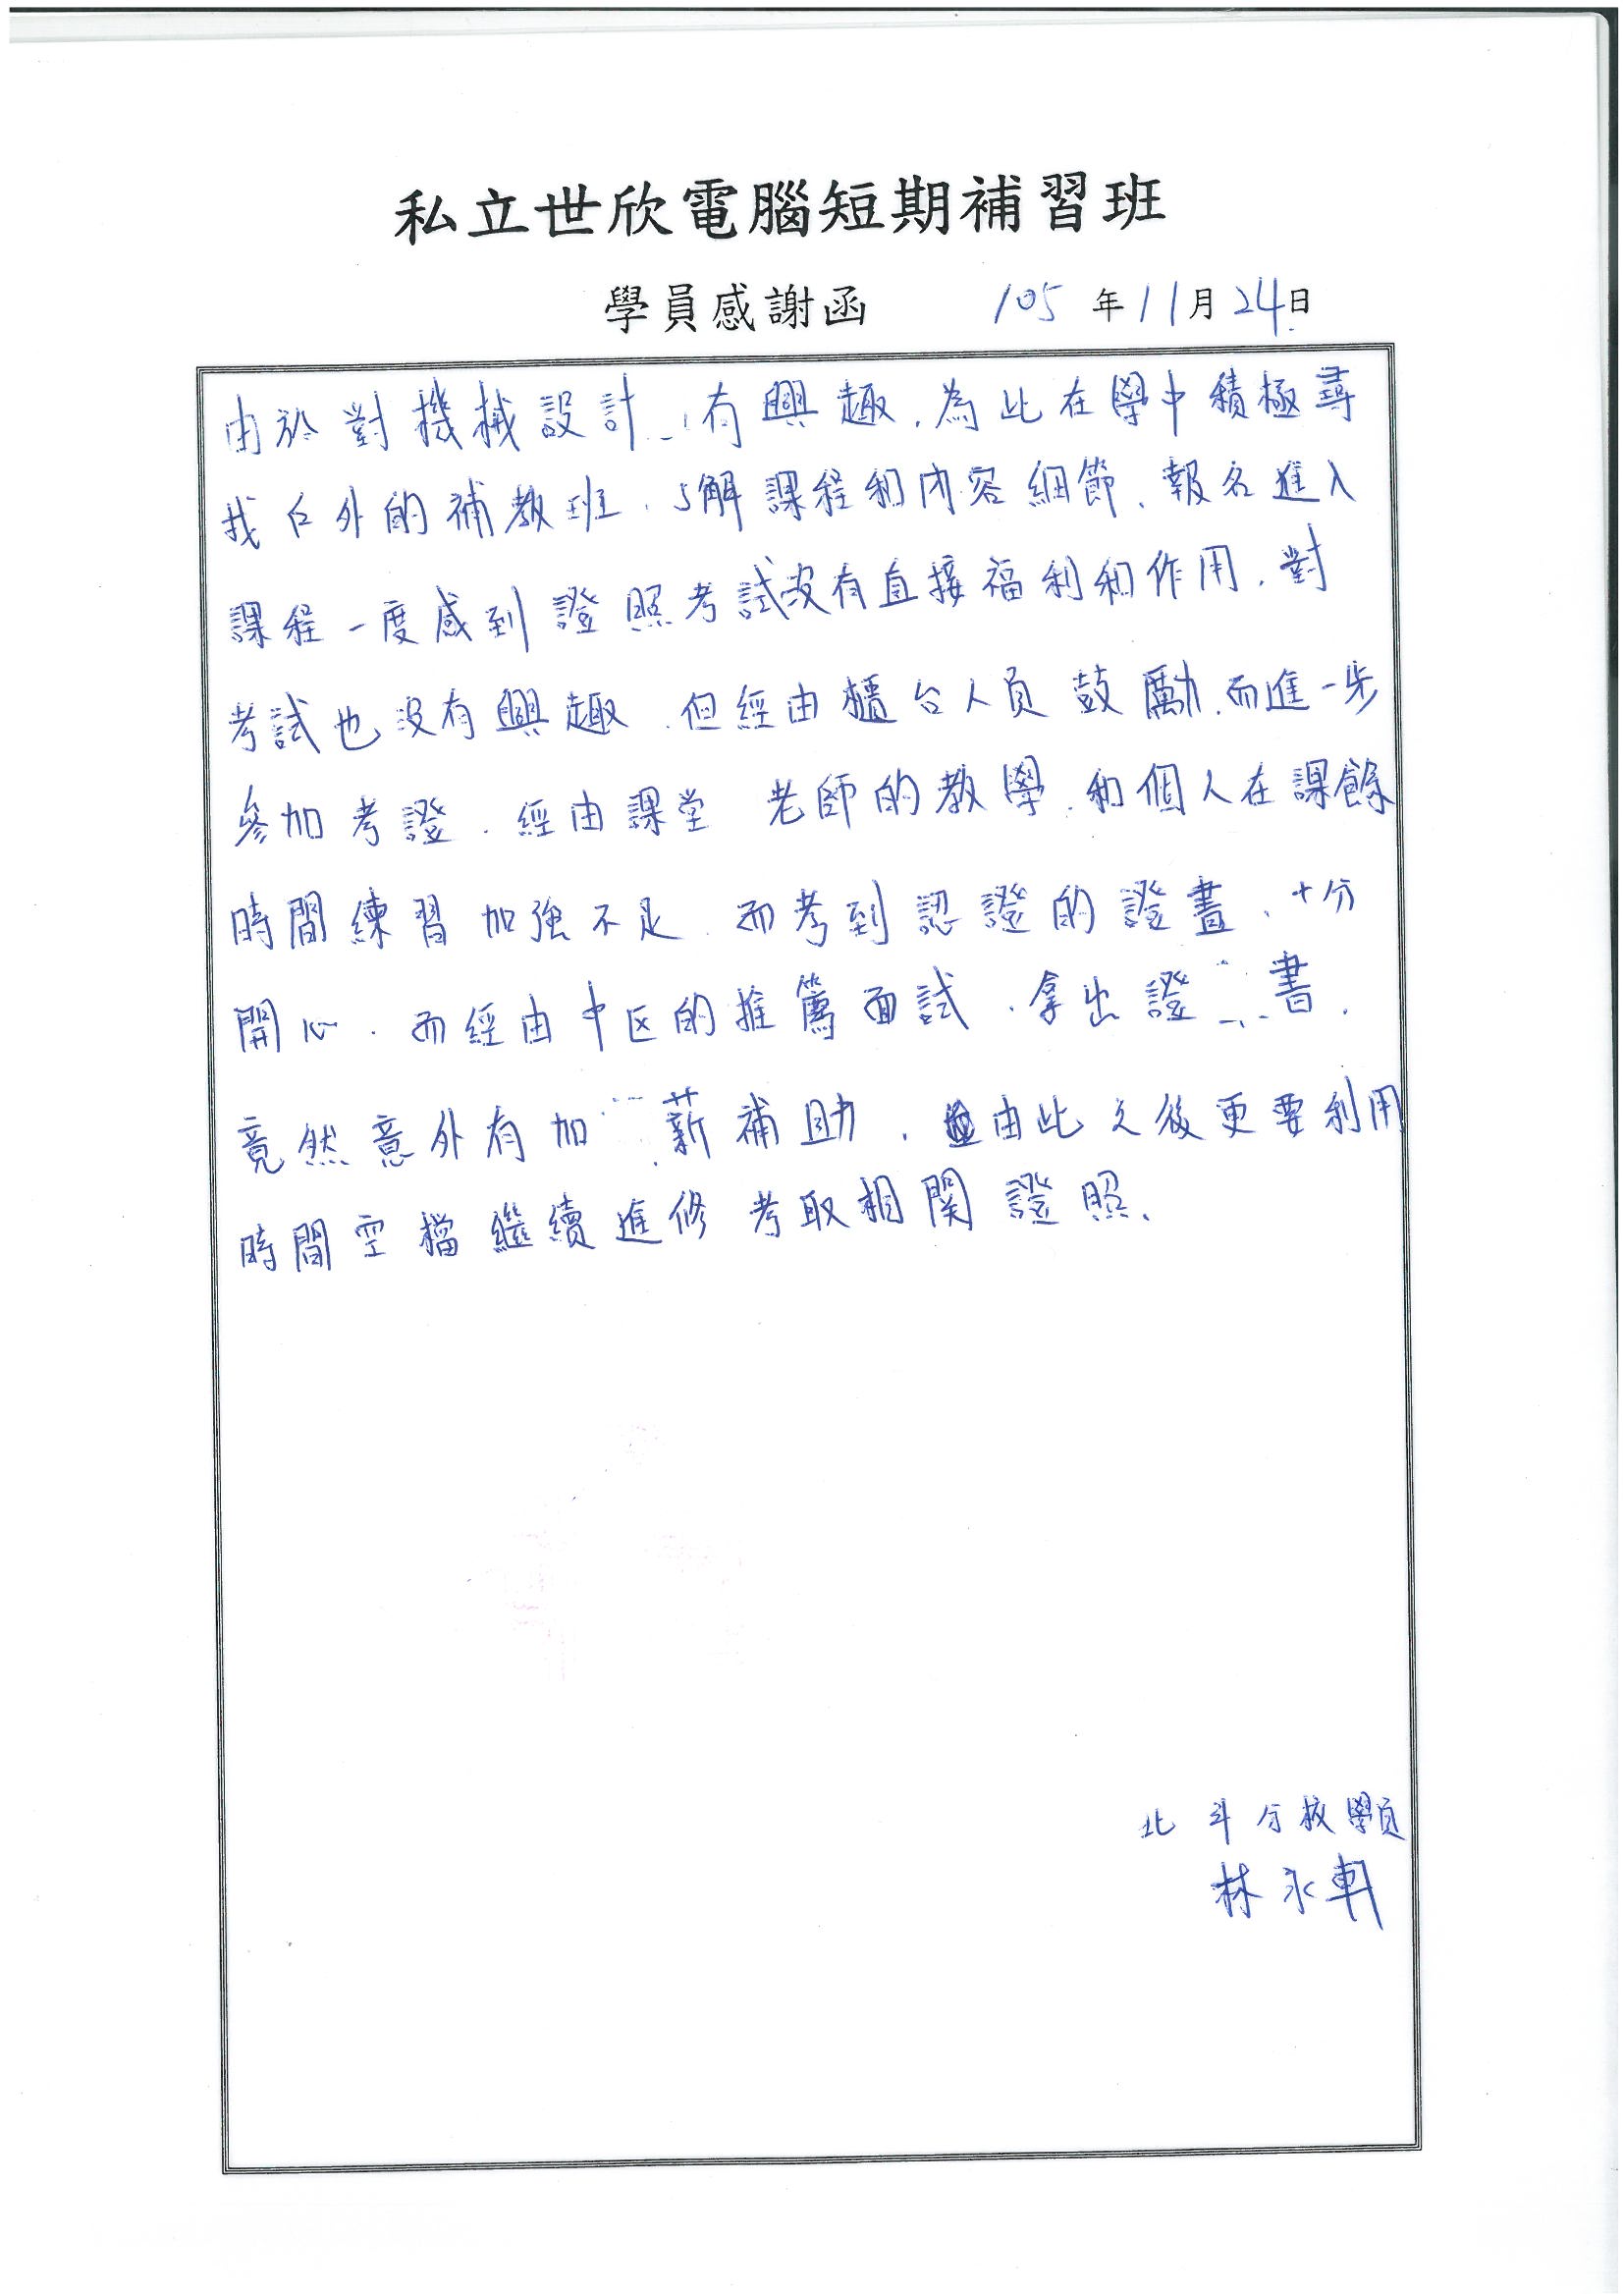 私立世欣電腦短期補習班
學員感謝函 105年11月24日
由於對機械設計有興趣,為此在學中積極尋
找戶外的補教班,了解課程和內容細節,報名進入
課程一度感到證照考試沒有直接福利和作用,對
考試也沒有興趣,但經由櫃台人員鼓勵,而進一步
參加考證,經由課堂 老師的教學,和個人在課餘
時間練習加強不足,而考到認證的證書,十分
開心,而經由中区的推薦面試,拿出證書,
竟然意外有加薪補助,由此之後更要利用
時間空檔繼續進修考取相関證照,
北斗分校學員
林永軒